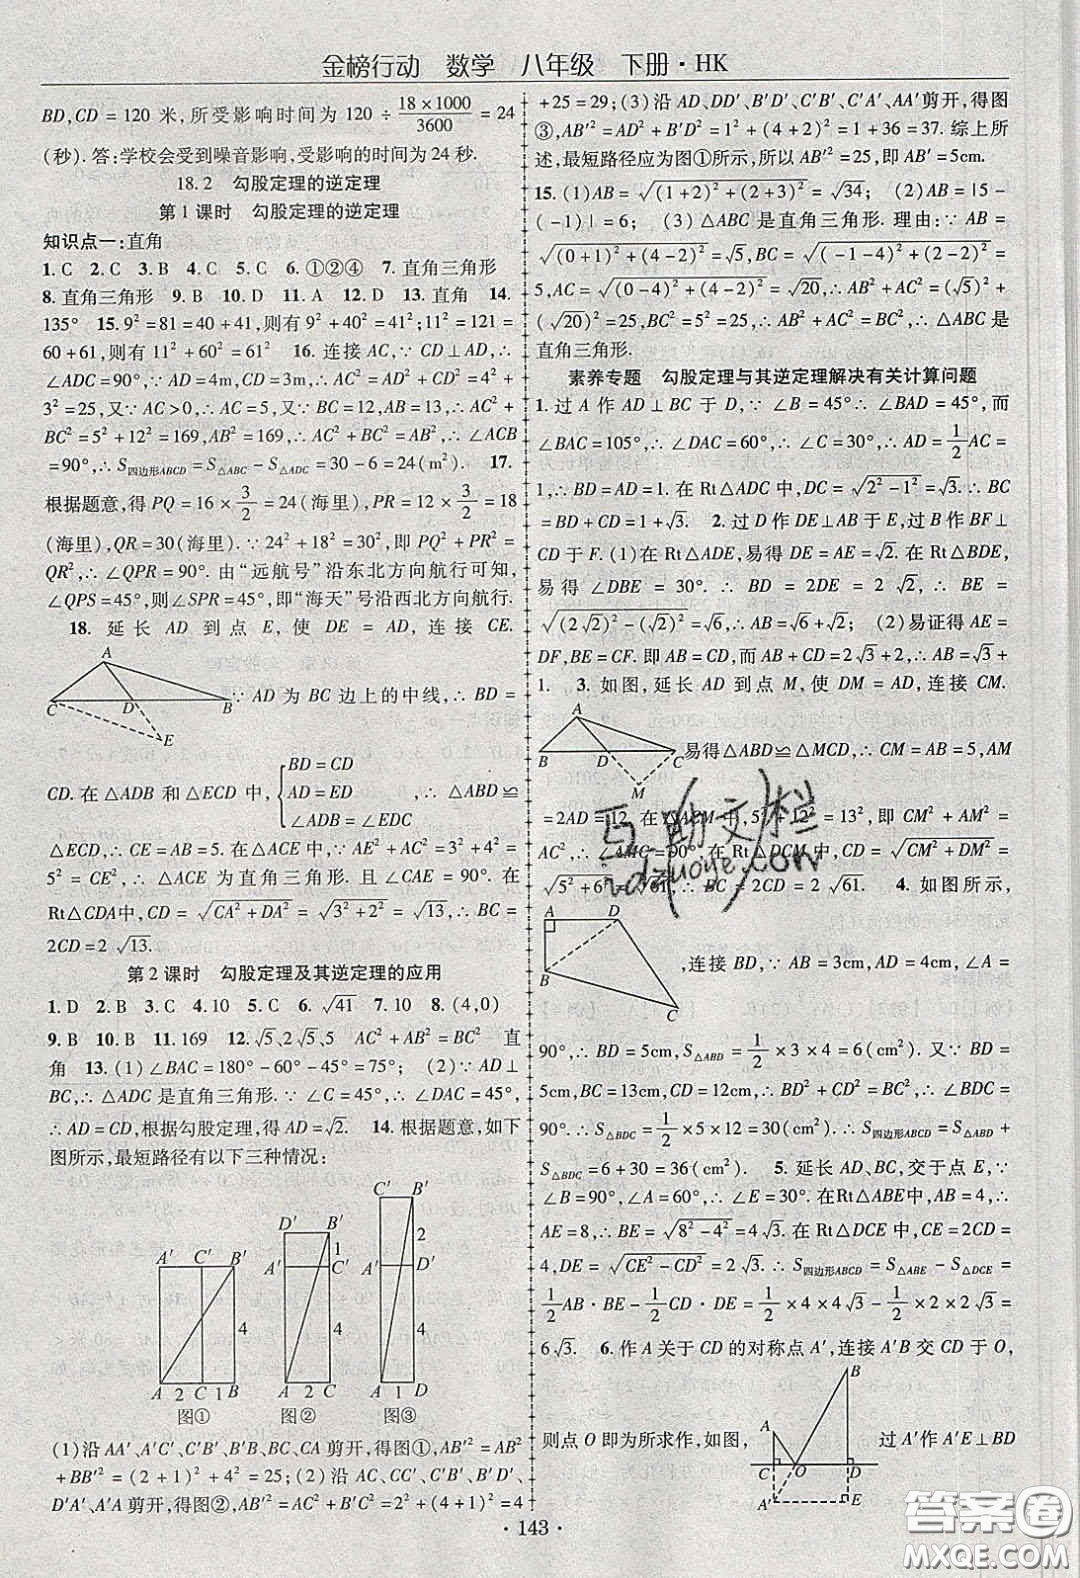 金榜行动 数学 八年级 下册·HK
BD,CD=120 米,所受影响时间为 120÷(18×1000)/3600=24
(秒).答:学校会受到噪音影响,受影响的时间为24秒.
18.2 勾股定理的逆定理
第1课时 勾股定理的逆定理
知识点一:直角
1.C 2.C 3.B 4.C 5.C 6.①②④ 7.直角三角形
8.直角三角形 9.B 10.D 11.A 12.D 13.直角 14.
135° 15.9²=81=40+41,则有9²+40²=41²;11²=121=
60+61,则有11²+60²=61² 16.连接AC,∵CD⊥AD,∴
∠ADC=90°,∵AD=4m,CD=3m,∴AC²=4²+3²=
25,又∵AC>0,∴AC=5,又∵BC=12m,AB=13m,∴AC²+
BC²=5²+12²=169,AB²=169,∴AC²+BC²=AB²,∴∠ACB
=90°,∴S四边形ABCD=S△ABC-S△ADC=30-6=24(m²). 17.
根据题意,得PQ=16×3/2=24(海里),PR=12×3/2=18
(海里),QR=30(海里).∵24²+18²=30²,即PQ²+PR²=
QR²,∴∠QPR=90°.由“远航号”沿东北方向航行可知,
∠QPS=45°,则∠SPR=45°,即“海天”号沿西北方向航行.
18.延长AD到点E,使DE=AD,连接CE.
A
C D B
E
∵AD为BC边上的中线,∴BD=
CD.在△ADB和△ECD中,{BD=CD
AD=ED
∠ADB=∠EDC
,∴△ABD≌
△ECD,∴AB=CE=5.在△ACE中,∵AE²+AC²=3²+4²=
5²=CE²,∴△ACE为直角三角形.且∠CAE=90°.在
Rt△CDA中,CD=√(CA²+DA²)=√(3²+2²)=√13,∴BC=
2CD=2√13.
第2课时 勾股定理及其逆定理的应用
1.D 2.B 3.C 4.10 5.C 6.√41 7.10 8.(4,0)
9.B 10.B 11.169 12.√5、2√5、5 AC²+AB²=BC² 直
角 13.(1)∠BAC=180°-60°-45°=75°; (2)∵AD⊥
BC,∴△ADC是直角三角形.∵∠C=45°,∴∠DAC=45°,
∴AD=CD,根据勾股定理,得AD=√2. 14.根据题意,如下
图所示,最短路径有以下三种情况:
A′ C′ B′
4
A 2 C 1 B
图①
D′ B′
1
A′ C′
4
A 2 C
图②
C′ B′
2
A′ D′
4
A 1 D
图③
(1)沿AA′、A′C′、C′B′、B′B、BC、CA剪开,得图①,AB′²=AB²
+BB′²=(2+1)²+4²=25;(2)沿AC、CC′、C′B′、B′D′、
D′A′、A′A剪开,得图②,AB′²=AC²+B′C²=2²+(4+1)²=4
+25=29;(3)沿AD、DD′、B′D′、C′B′、C′A′、AA′剪开,得图
③,AB′²=AD²+B′D²=1²+(4+2)²=1+36=37.综上所
述,最短路径应为图①所示,所以AB′²=25,即AB′=5cm.
15.(1)AB=√((1+2)²+(2+3)²)=√34; (2)AB=|5-
(-1)|=6; (3)△ABC是直角三角形.理由:∵AB=
√((0+1)²+(4-2)²)=√5,BC=√((-1-4)²+(2-2)²)=
5,AC=√((0-4)²+(4-2)²)=√20,∴AB²+AC²=(√5)²+
(√20)²=25,BC²=5²=25,∴AB²+AC²=BC²,∴△ABC是
直角三角形.
素养专题 勾股定理与其逆定理解决有关计算问题
1.过A作AD⊥BC于D,∵∠B=45°∴∠BAD=45°,而
∠BAC=105°,∴∠DAC=60°,∴∠C=30°,∴AD=1/2AC=
1,∴BD=AD=1.在Rt△ADC中,DC=√(2²-1²)=√3.∴BC
=BD+CD=1+√3. 2.过D作DE⊥AB于E,过B作BF⊥
CD于F.(1)在Rt△ADE,易得DE=AE=√2.在Rt△BDE,
易得∠DBE=30°.∴BD=2DE=2√2,∴BE=
√((2√2)²-(√2)²)=√6,∴AB=√6+√2; (2)易证得AE=
DF,BE=CF.即AB=CD,∴AB+CD=2AB=2√3+2,∴AB=√3+
1. 3.如图,延长AD到点M,使DM=AD,连接CM.
A
B D C
M
易得△ABD≌△MCD,∴CM=AB=5,AM
=2AD=12.在△ACM中,5²+12²=13²,即CM²+AM²=
AC²,∴∠AMC=90°.在Rt△DCM中,CD=√(CM²+DM²)=
√(5²+6²)=√61,∴BC=2CD=2√61. 4.如图所示,
A D
B
C
,连接BD,∵AB=3cm,AD=4cm,∠A=
90°,∴BD=5cm,S△ABD=1/2×3×4=6(cm²).又∵BD=
5cm,BC=13cm,CD=12cm,∴BD²+CD²=BC²,∴∠BDC=
90°.∴S△BDC=1/2×5×12=30(cm²).∴S四边形ABCD=S△ABD+
S△BDC=6+30=36(cm²). 5.延长AD、BC,交于点E,∵
∠B=90°,∠A=60°,∴∠E=30°.在Rt△ABE中,AB=4,∴
AE=8,∴BE=√(8²-4²)=4√3.在Rt△DCE中,CE=2CD=
4,DE=√(CE²-CD²)=2√3.∴S四边形ABCD=S△ABE-S△DCE=
1/2AB·BE-1/2CD·DE=1/2×4×4√3-1/2×2×2√3=
6√3. 6.作A关于CD的对称点A′,连接A′B交CD于O,
则点O即为所求作,如图,
B
A
C O D
A′ E
过A′作A′E⊥BD
·143·
互助文栏
答案圈
MXQE.COM